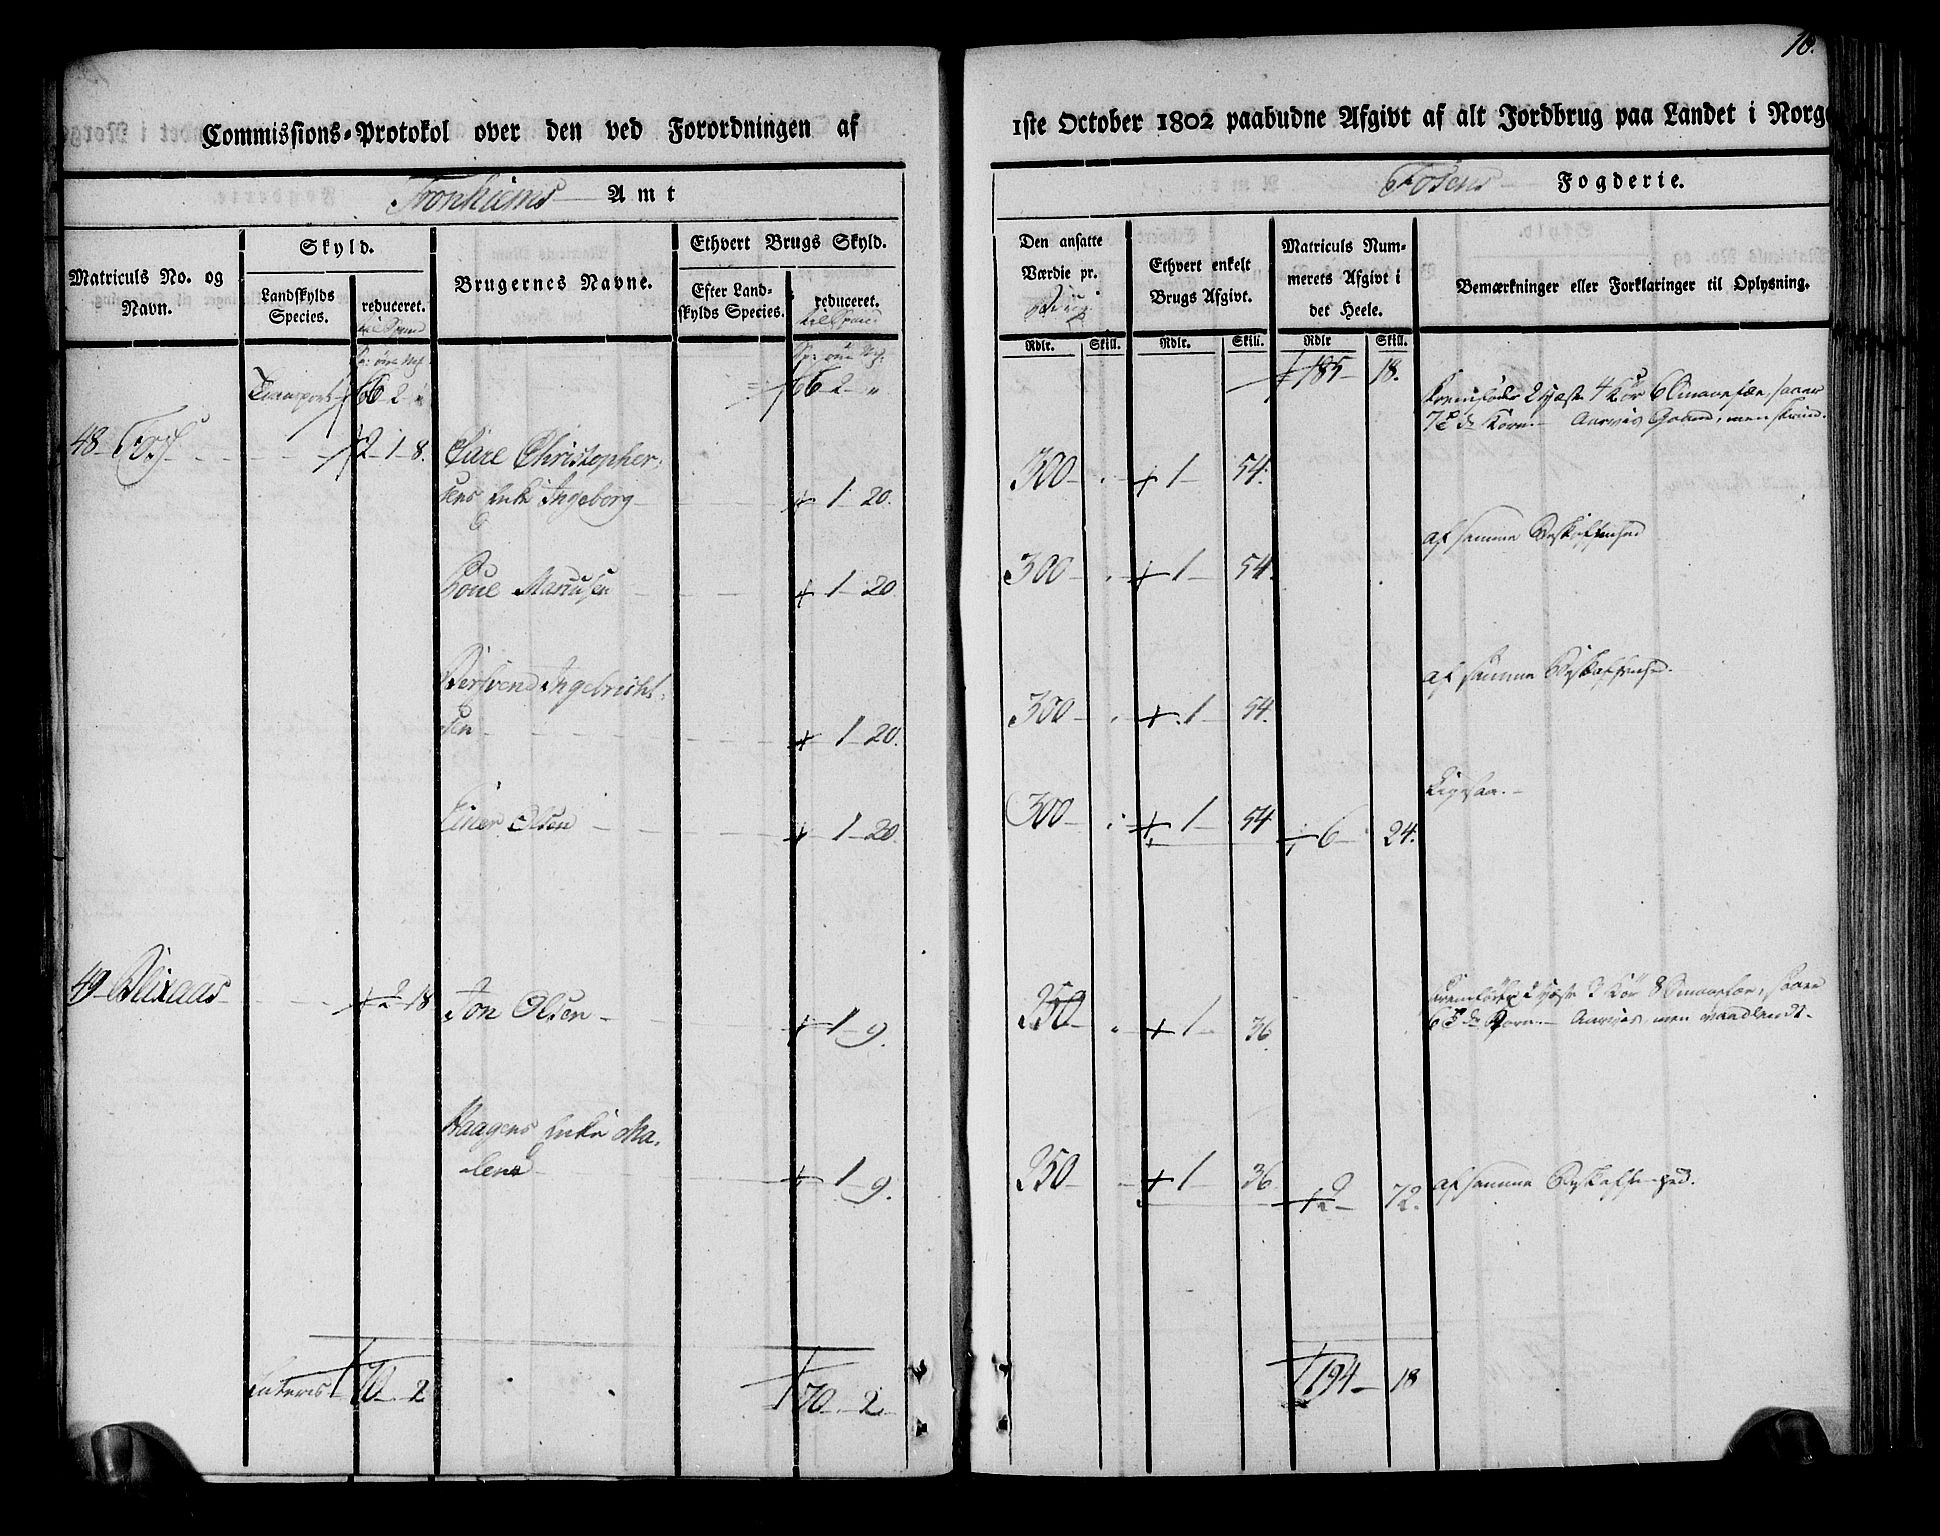 18.
Commissions-Protokol over den ved Forordningen af 1ste October 1802 paabudne Afgivt af alt Jordbrug paa Landet i Norge
Tronhiems Amt
Fosens Fogderie.
Matriculs No. og
Navn.
Skyld.
Landskylds
Species.
reduceret.
Brugernes Navne.
Ethvert Brugs Skyld.
Efter Land-
skylds Species.
reduceret.
Den ansatte
Værdie pr.
Ethvert enkelt
Brugs Afgivt.
Matriculs Num-
merets Afgivt i
det Heele.
Bemærkninger eller Forklaringer til Oplysning.
Rdlr. Skill. Rdlr. Skill. Rdlr Skill.
Transport 66 2 " 66 2 " 185 18.
48 2 1 8. Christopher-
sens Enke Ingeborg 1 20. 300 1 54.
1 20 300 1 54. af samme Beskaffenhed
Ingebricht-
sen 1 20. 300 1 54. af samme Beskaffenhed.
Einer Olsen 1 20. 300 1 54 6 24. Ligesaa.
49 Blixaas 2 18 Jon Olsen 1 9. 250 1 36.
Haagens Enke Ma-
lene 1 9. 250 1 36 2 72. af samme Beskaffenhed.
Lateris 70 2 70 2 194 18